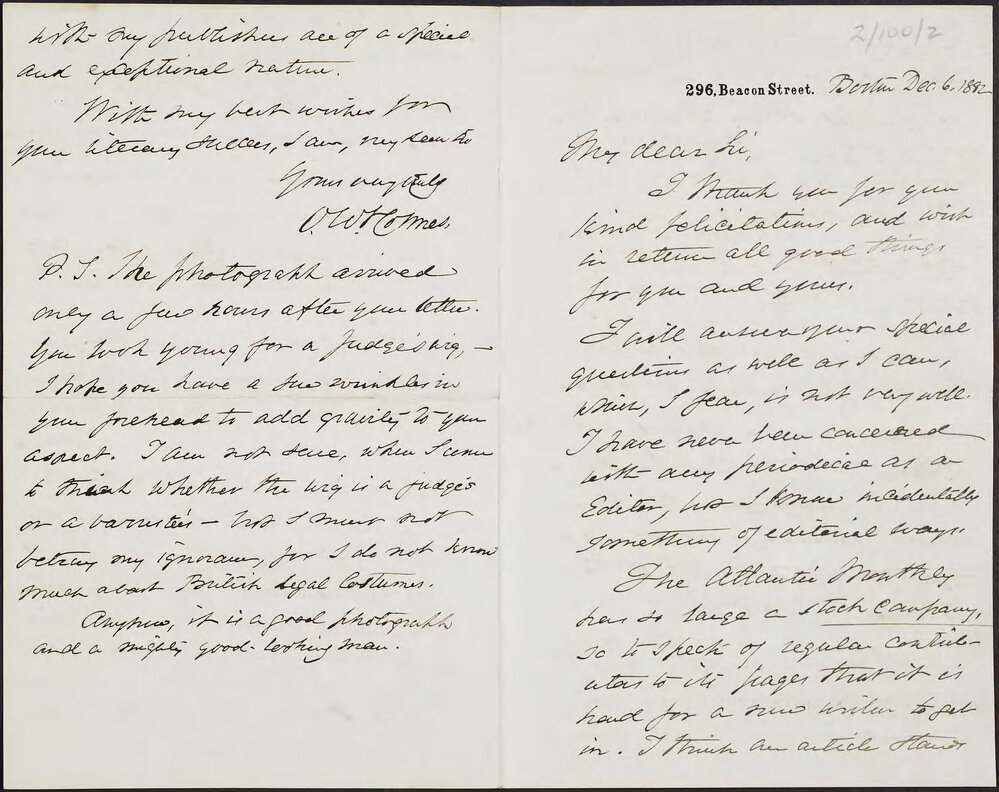 2/100/2
296, Beacon Street. Boston Dec. 6. 1882
My dear Sir,
I thank you for your
kind felicitations, and wish
in return all good things
for you and yours.
I will answer your special
questions as well as I can,
which, I fear, is not very well.
I have never been concerned
with any periodical as an
Editor, but I know incidentally
something of editorial ways.
The Atlantic Monthly
has so large a stock company,
so to speak of regular contrib-
utors to its pages that it is
hard for a new writer to get
in. I think an article stands
with my publishers are of a special
and exceptional nature.
With my best wishes for
your literary success, I am, my dear Sir
Yours very truly
O. W. Holmes.
P. S. The photograph arrived
only a few hours after your letter.
You look young for a Judge's wig, –
I hope you have a few wrinkles in
your forehead to add gravity to your
aspect. I am not sure, when I come
to think whether the wig is a judge's
or a barrister's – but I must not
betray my ignorance, for I do not know
much about British legal costumes.
Anyhow, it is a good photograph
and a mighty good-looking man.